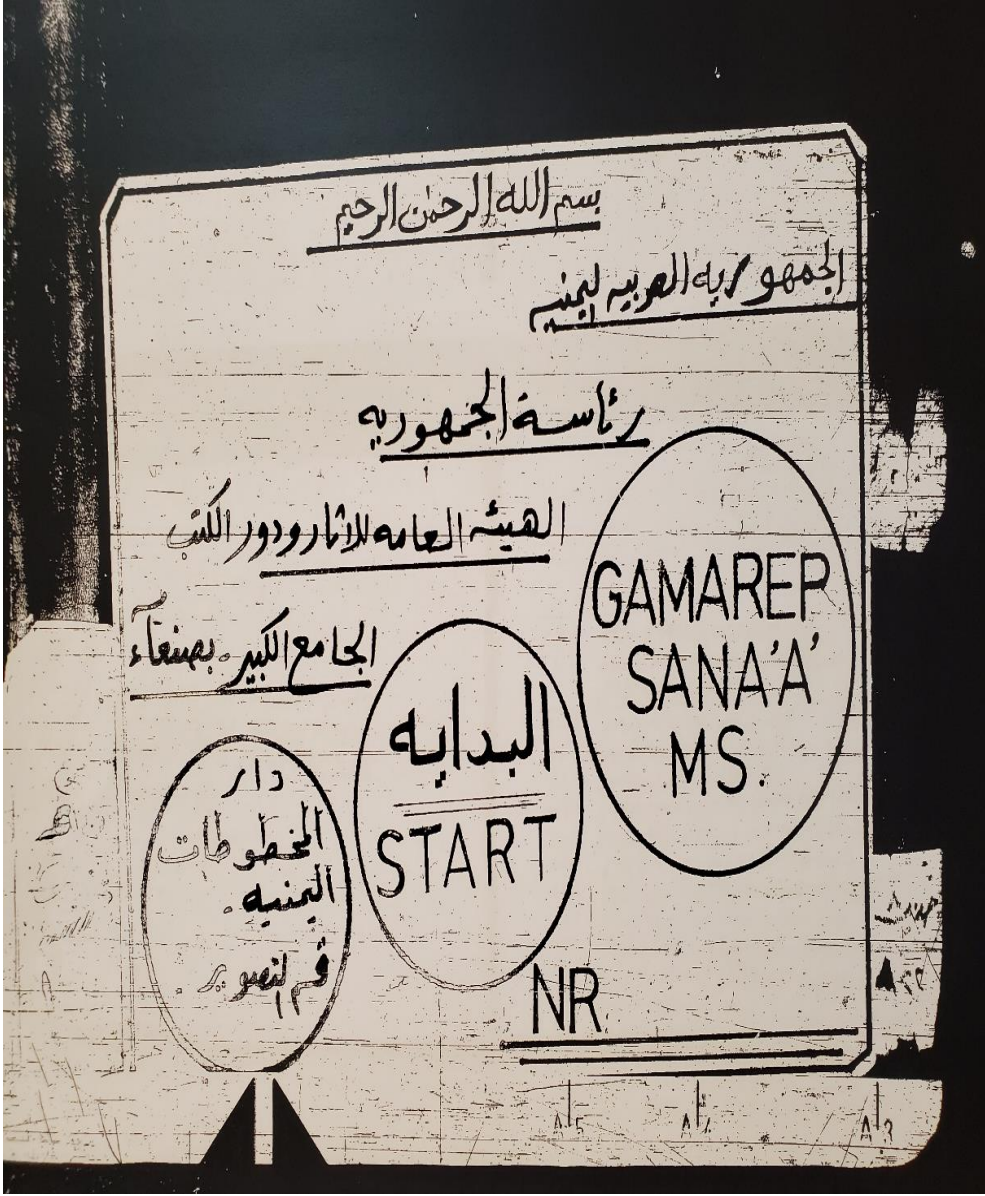 بسم الله الرحمن الرحيم
الجمهوريه العربيه ليمنيه
رئاسة الجمهوريه
الهيئه العامه للاثار ودور الكتب
الجامع الكبير . بصنعآء
GAMAREP
SANA'A'
MS.
البدايه
START
دار
المخطوطات
اليمنيه .
قسم التصوير .
NR
A5
A4
A3